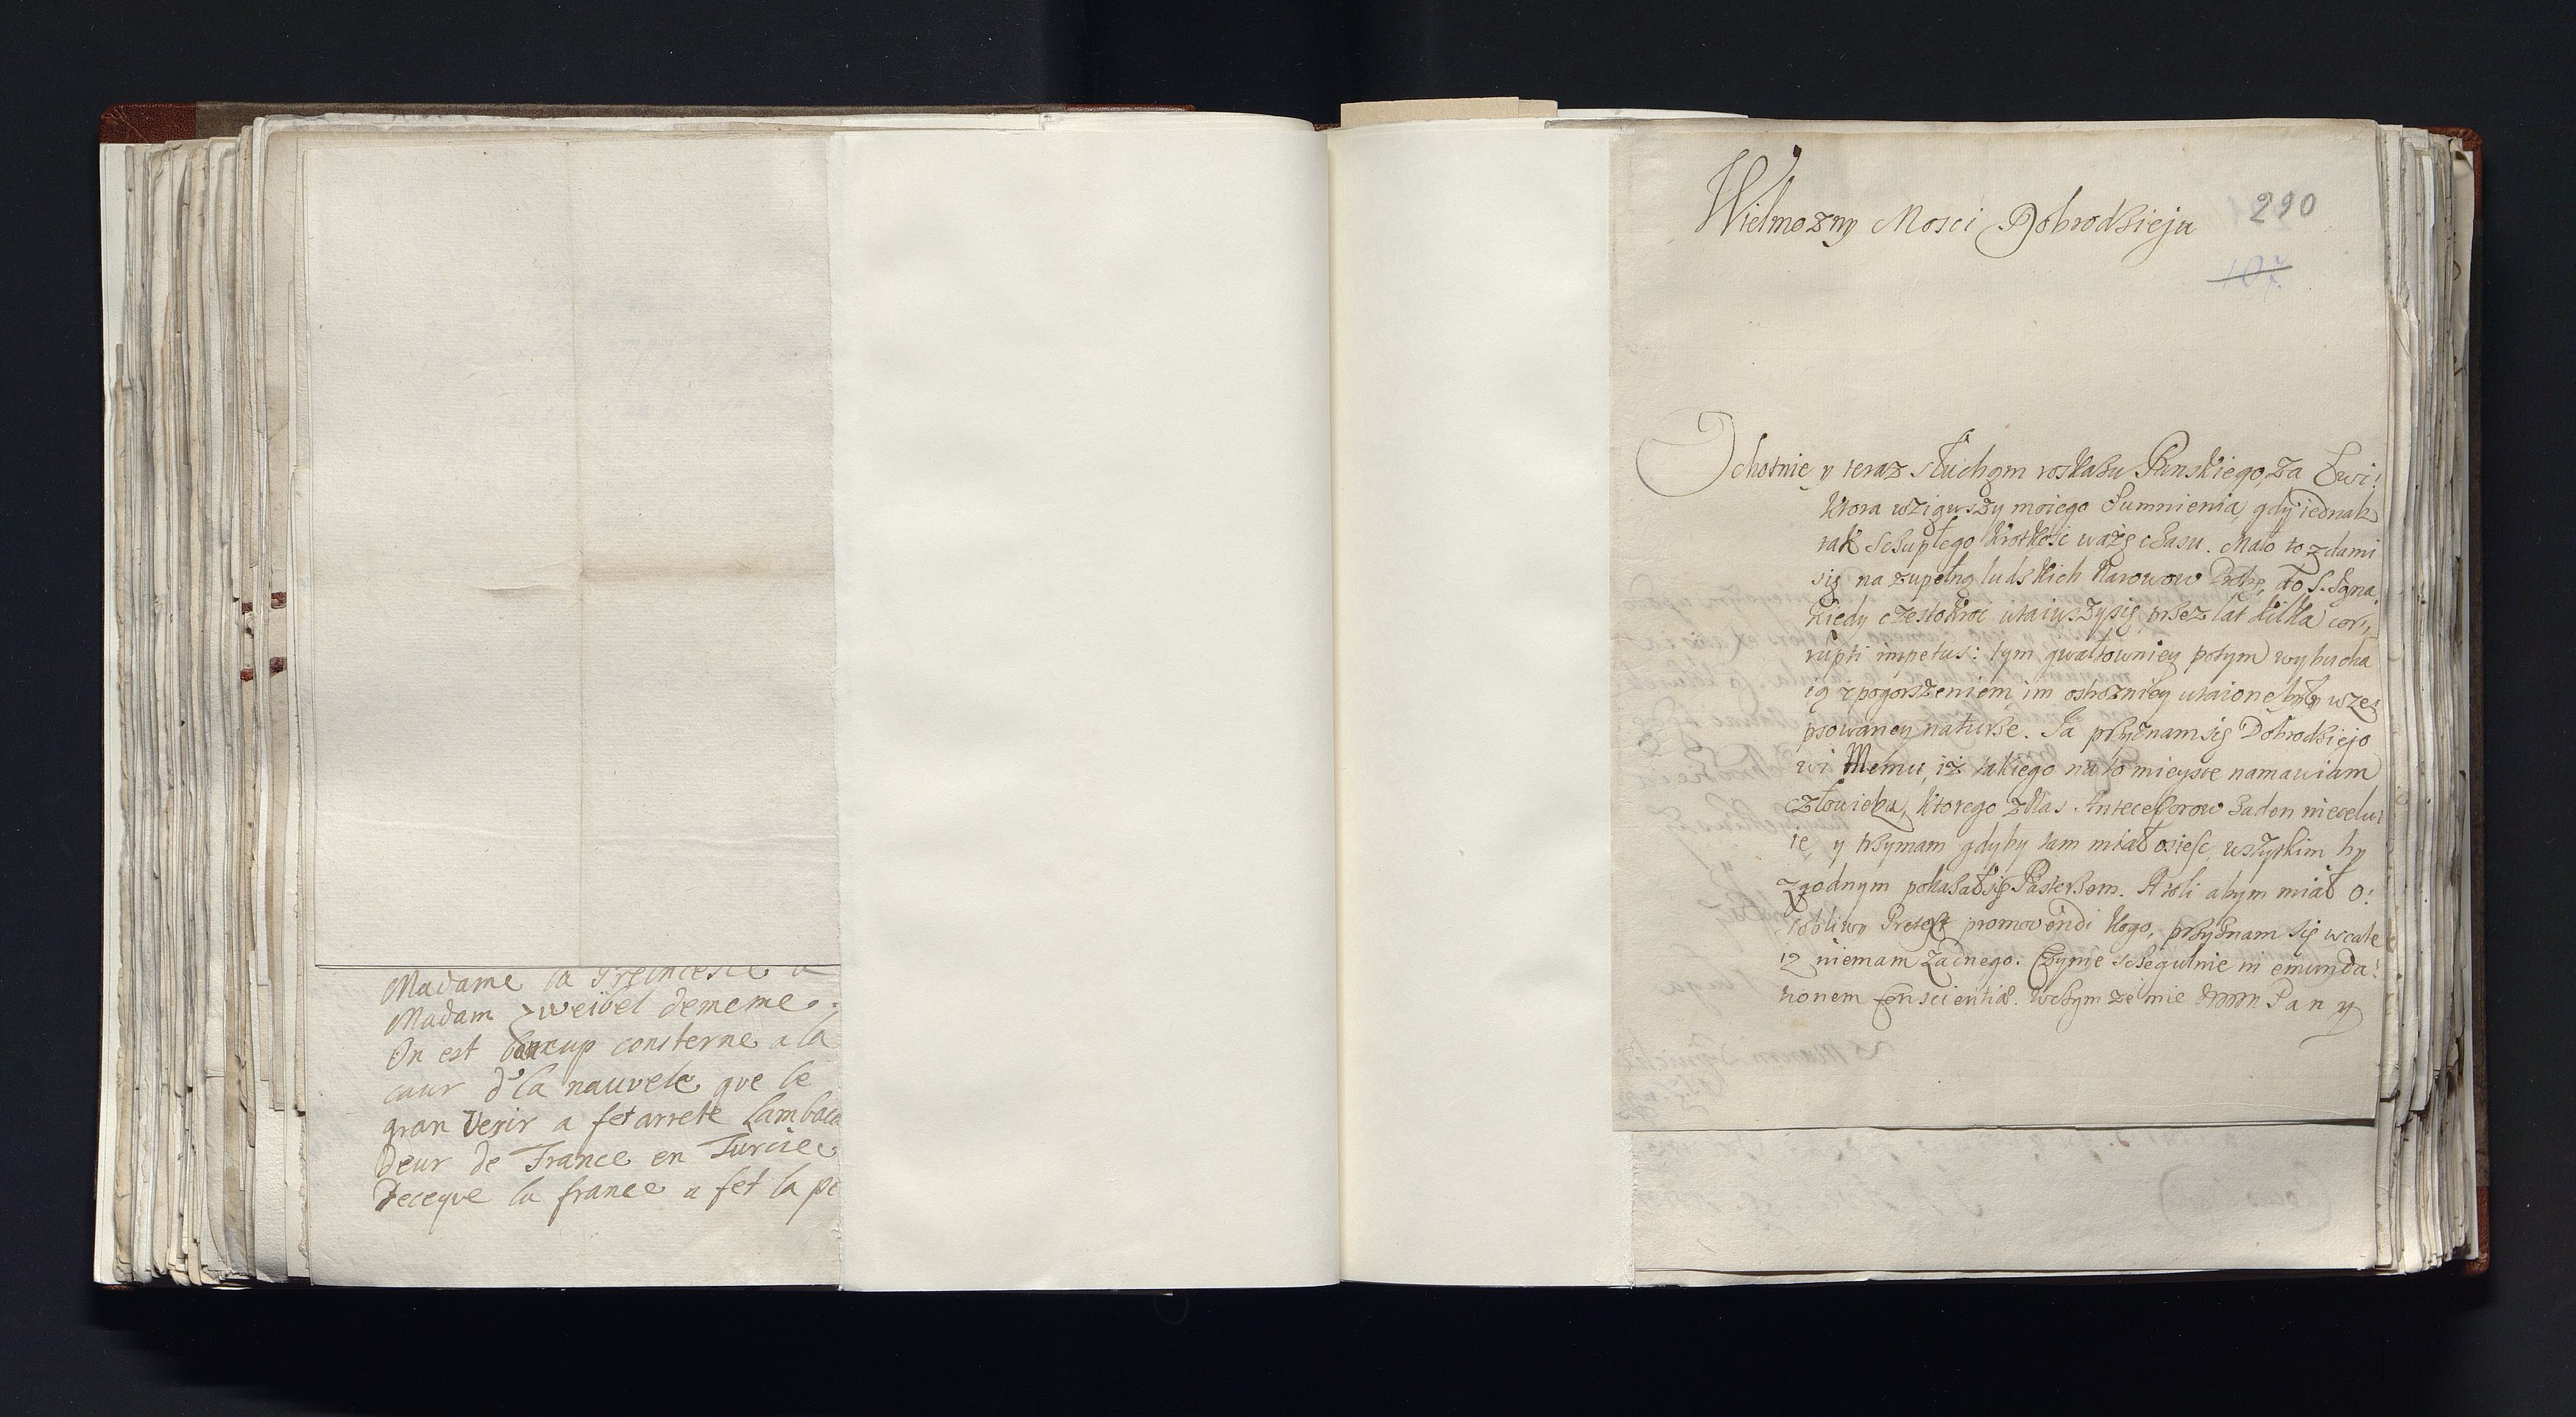 Madame la Preincesse a
Madam Zweibel dememe
On est baucup consterne a la
cour d'la nauvele que le
gran Vesir a fet arrete Lambaca
deur de France en Turcie
Deceque la france a fet la pe
290
Wielmozny Mosci Dobrodzieju
107
Ochotnie y teraz słucham roskazu Panskiego, za
ktora wziąwszy moiego Sumnienia, gdy iednak
tak Sczupłego krotkosc ważę czasu. Mało to zdami
się na zupełną ludzkich Narowow
kiedy częstokroc utaiwszysię przez lat kilka cor,,
rupti impetus: tym gwałtowniey potym wybucha
ią z pogorszeniem, im ostrozniey utaione były w ze
psowaney naturze. Ja przyznam się Dobrodziejo
wi Memu, iż takiego na to mieysce namawiam
człowieka, ktorego z Nas Antecessorow zaden niecelu
ie, y trzymam gdyby tam miał osieśc, wszytkim by
zgodnym pokazał się Pasterzem. Kżoli abym miał o:
sobliwy promovendi kogo, przyznam się wcale
iz niemam żadnego. Czynie sczegulnie in emunda:
tionem conscientiæ. Wczym ze mie Pan y